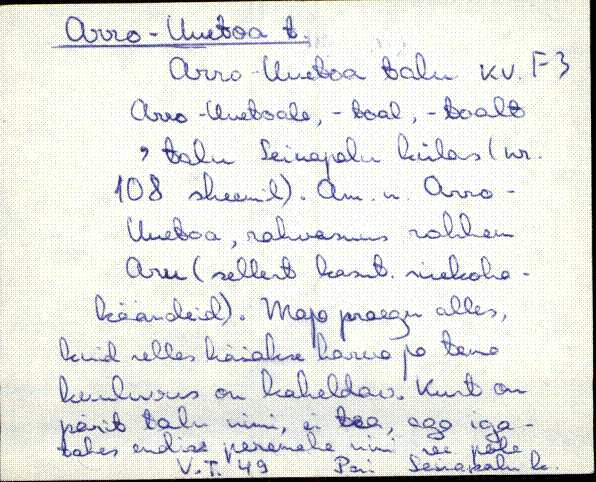 Arro-Unetoa t.
Arro-Unetoa talu KV. F3
Arro-Unetoale, -toal, -toalt
, talu Seinapalu külas (nr.
108 skeemil). Am. n. Arro-
Unetoa, rahvasuus rohkem
Aru (sellest kasut. siekoha-
käändeid). Maja praegu alles,
kuid selles käiakse harva ja tema
kuuluvus on kaheldav. Kust on
pärit talu nimi, ei tea, aga iga-
tahes endise peremehe nimi see pole
V.T. '49 Pai Seinapalu k.